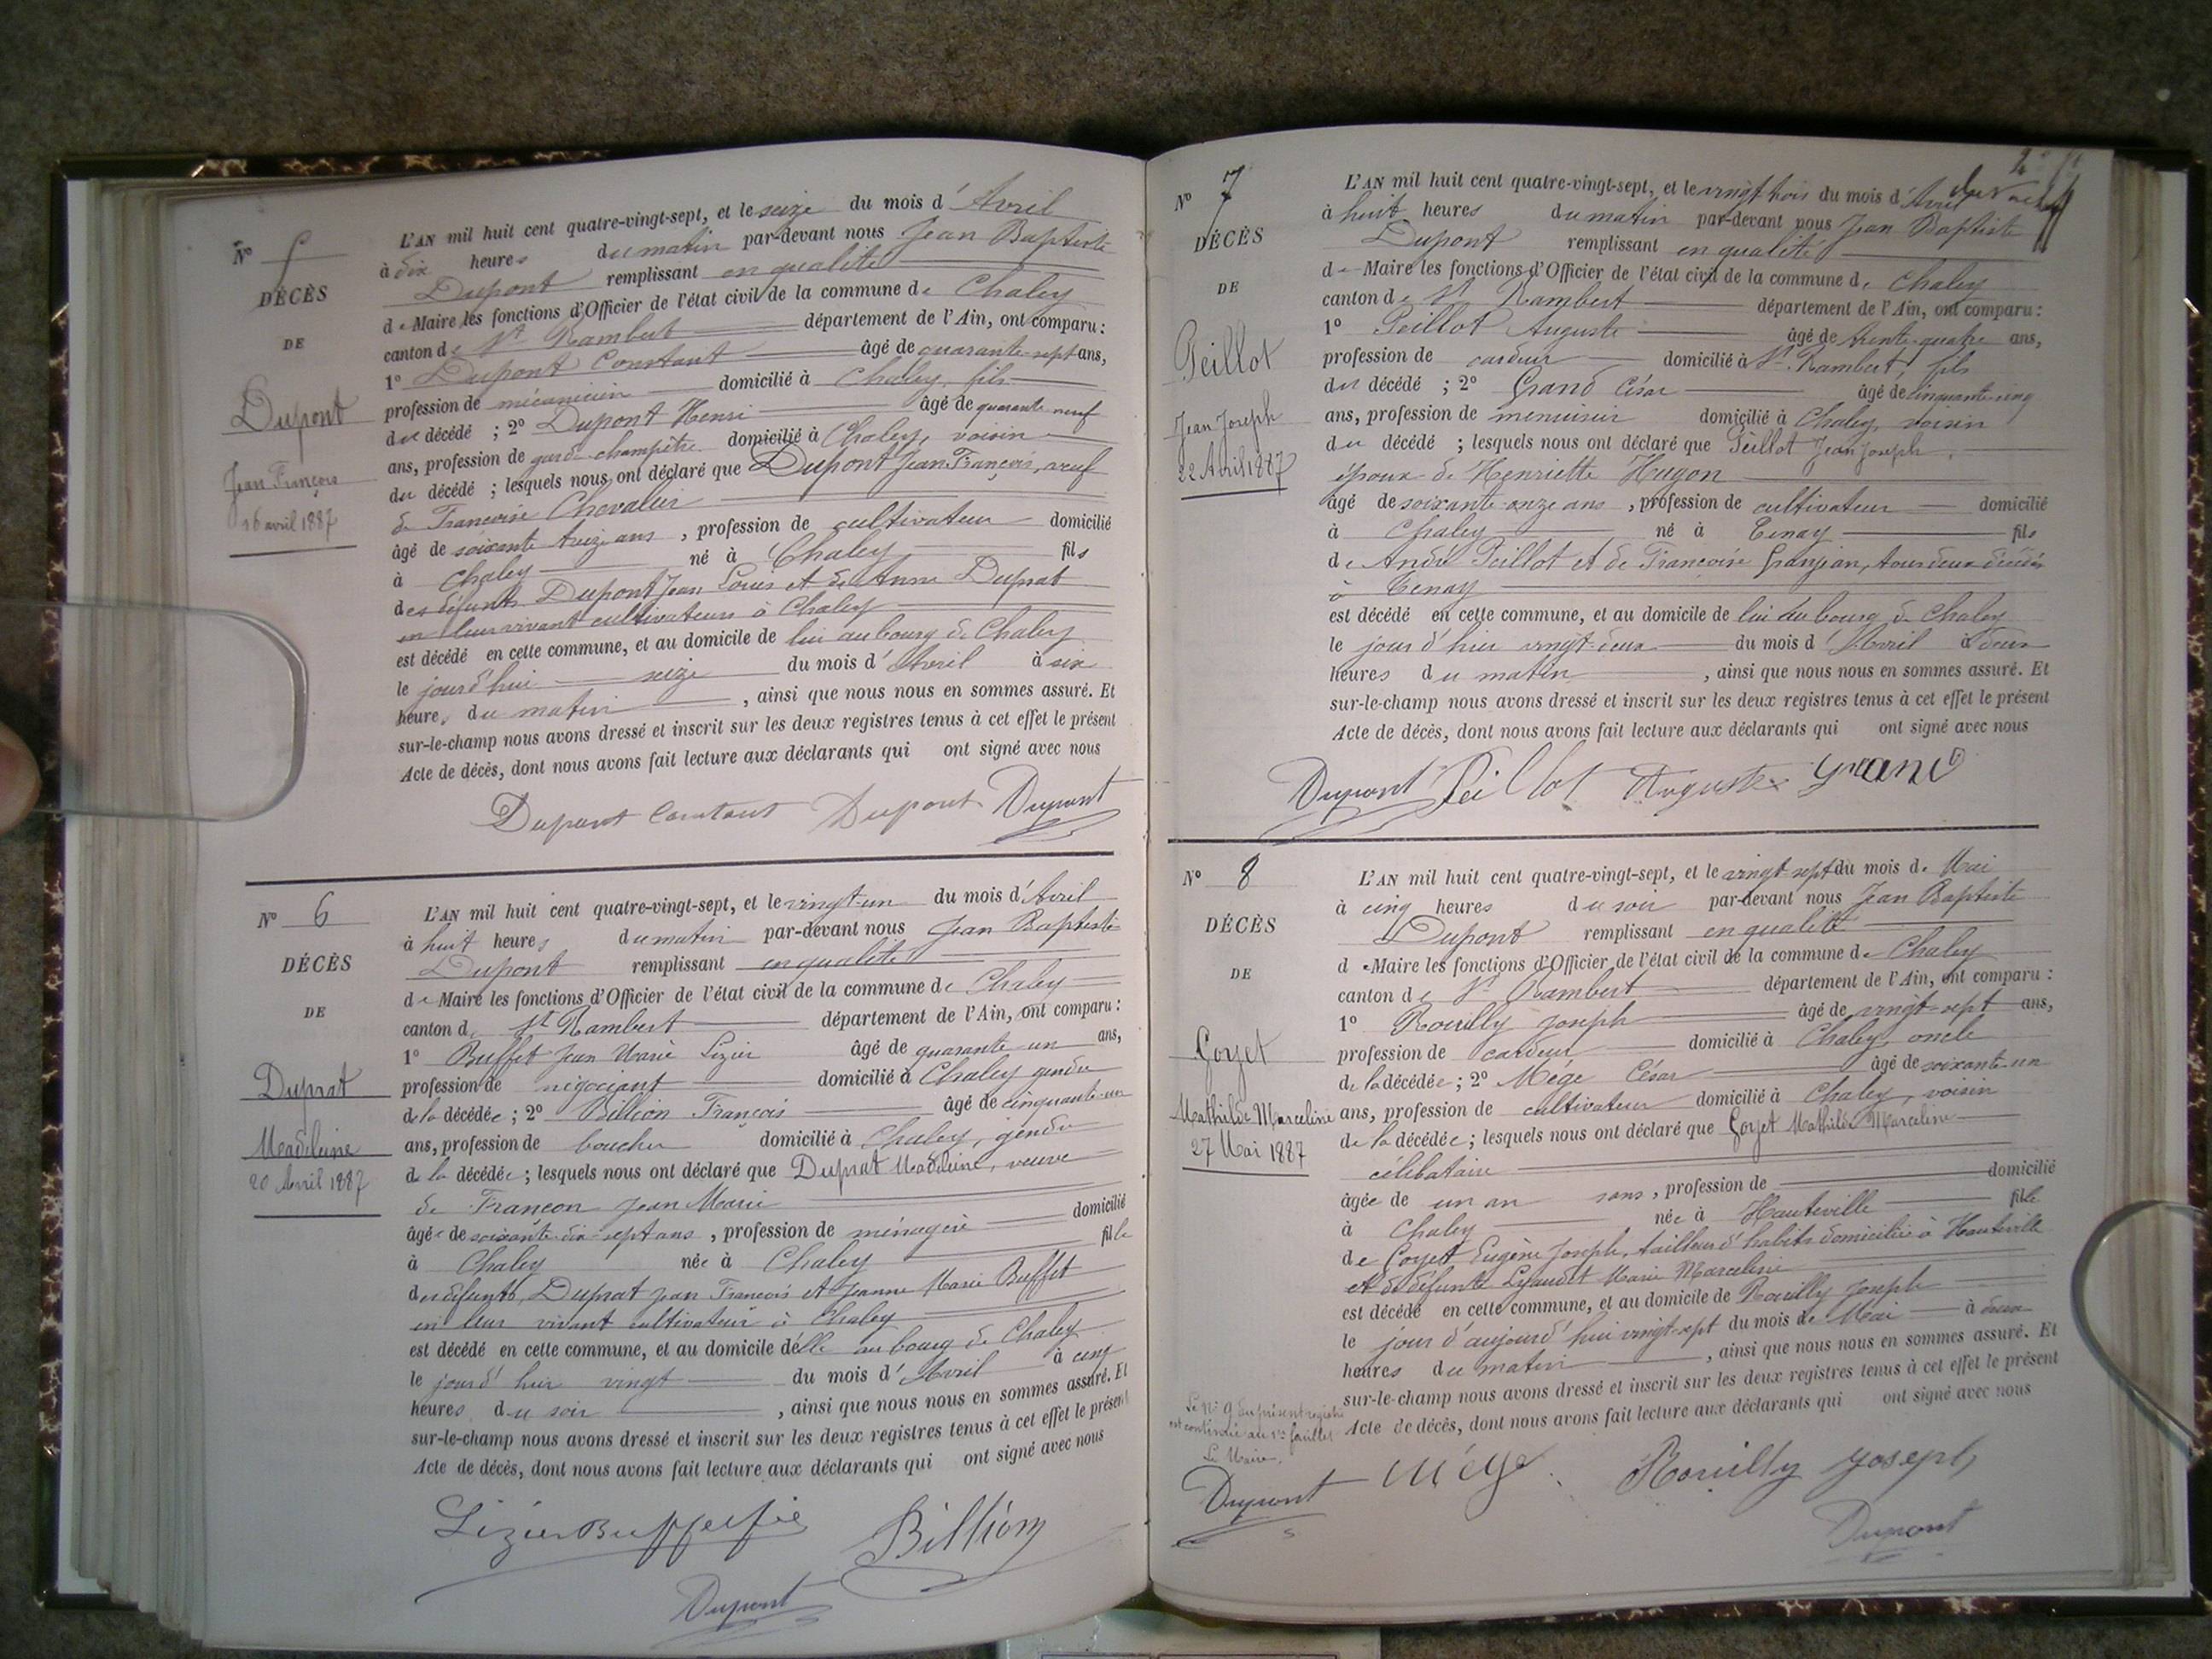 N° 5
DÉCÈS
DE
Dupont
Jean François
16 avril 1887
L'AN mil huit cent quatre-vingt-sept, et le seize du mois d'Avril
à dix heures du matin par-devant nous Jean Baptiste
Dupont remplissant en qualité
de Maire les fonctions d'Officier de l'état civil de la commune de Chaley
canton de St Rambert département de l'Ain, ont comparu :
1° Dupont Constant âgé de quarante-sept ans,
profession de mécanicien domicilié à Chaley, fils
du décédé ; 2° Dupont Henri âgé de quarante neuf
ans, profession de garde champêtre domicilié à Chaley, voisin
du décédé ; lesquels nous ont déclaré que Dupont Jean François, veuf
de Francoise Chevalier
âgé de soixante treize ans, profession de cultivateur domicilié
à Chaley né à Chaley fils
des défunts Dupont Jean Louis et de Anne Duprat
en leur vivant cultivateurs à Chaley
est décédé en cette commune, et au domicile de lui au bourg de Chaley
le jourd'hui seize du mois d'Avril à six
heures du matin, ainsi que nous nous en sommes assuré. Et
sur-le-champ nous avons dressé et inscrit sur les deux registres tenus à cet effet le présent
Acte de décès, dont nous avons fait lecture aux déclarants qui ont signé avec nous
Dupont Constant Dupont Dupont
N° 6
DÉCÈS
DE
Duprat
Madeleine
20 Avril 1887
L'AN mil huit cent quatre-vingt-sept, et le vingt-un du mois d'Avril
à huit heures du matin par-devant nous Jean Baptiste
Dupont remplissant en qualité
de Maire les fonctions d'Officier de l'état civil de la commune de Chaley
canton de St Rambert département de l'Ain, ont comparu :
1° Buffet Jean Marie Lizier âgé de quarante un ans,
profession de négociant domicilié à Chaley gendre
de la décédée ; 2° Billion François âgé de cinquante-un
ans, profession de boucher domicilié à Chaley, gendre
de la décédée ; lesquels nous ont déclaré que Duprat Madeleine, veuve
de Françon Jean Marie
âgée de soixante-dix-sept ans, profession de ménagère domicilié
à Chaley née à Chaley fille
des défunts, Duprat Jean François et Jeanne Marie Buffet
en leur vivant cultivateur à Chaley
est décédé en cette commune, et au domicile d'elle au bourg de Chaley
le jour d'hier vingt du mois d'Avril à cinq
heures du soir, ainsi que nous nous en sommes assuré. Et
sur-le-champ nous avons dressé et inscrit sur les deux registres tenus à cet effet le présent
Acte de décès, dont nous avons fait lecture aux déclarants qui ont signé avec nous
Lizier Buffet Billion
Dupont
N° 7
DÉCÈS
DE
Peillot
Jean Joseph
22 Avril 1887
L'AN mil huit cent quatre-vingt-sept, et le vingt trois du mois d'Avril
à huit heures du matin par-devant nous Jean Baptiste
Dupont remplissant en qualité
de Maire les fonctions d'Officier de l'état civil de la commune de Chaley
canton de St Rambert département de l'Ain, ont comparu :
1° Peillot Auguste âgé de trente-quatre ans,
profession de cardeur domicilié à St Rambert, fils
du décédé ; 2° Grand César âgé de cinquante-cinq
ans, profession de menuisier domicilié à Chaley, voisin
du décédé ; lesquels nous ont déclaré que Peillot Jean Joseph,
époux de Henriette Hugon
âgé de soixante-onze ans, profession de cultivateur domicilié
à Chaley né à Tenay fils
de André Peillot et de Francoise Granjean, tous deux décédés
à Tenay
est décédé en cette commune, et au domicile de lui au bourg de Chaley
le jour d'hier vingt-deux du mois d'Avril à deux
heures du matin, ainsi que nous nous en sommes assuré. Et
sur-le-champ nous avons dressé et inscrit sur les deux registres tenus à cet effet le présent
Acte de décès, dont nous avons fait lecture aux déclarants qui ont signé avec nous
Dupont Peillot Auguste Grand
N° 8
DÉCÈS
DE
Goyet
Mathilde Marceline
27 Mai 1887
L'AN mil huit cent quatre-vingt-sept, et le vingt sept du mois de Mai
à cinq heures du soir par-devant nous Jean Baptiste
Dupont remplissant en qualité
de Maire les fonctions d'Officier de l'état civil de la commune de Chaley
canton de St Rambert département de l'Ain, ont comparu :
1° Rouilly Joseph âgé de vingt-sept ans,
profession de cardeur domicilié à Chaley, oncle
de la décédée ; 2° Mége César âgé de soixante-un
ans, profession de cultivateur domicilié à Chaley, voisin
de la décédée ; lesquels nous ont déclaré que Goyet Mathilde Marceline
célibataire
âgée de un an sans, profession de domicilié
à Chaley née à Hauteville fille
de Goyet Eugène Joseph, tailleur d'habits domicilié à Hauteville
et de défunte Lyaudet Marie Marceline
est décédé en cette commune, et au domicile de Rouilly Joseph
le jour d'aujourd'hui vingt-sept du mois de Mai à deux
heures du matin, ainsi que nous nous en sommes assuré. Et
sur-le-champ nous avons dressé et inscrit sur les deux registres tenus à cet effet le présent
Acte de décès, dont nous avons fait lecture aux déclarants qui ont signé avec nous
Le N° 9 du présent registre
est continué au feuillet
Le Maire,
Dupont Mége Rouilly Joseph
Dupont